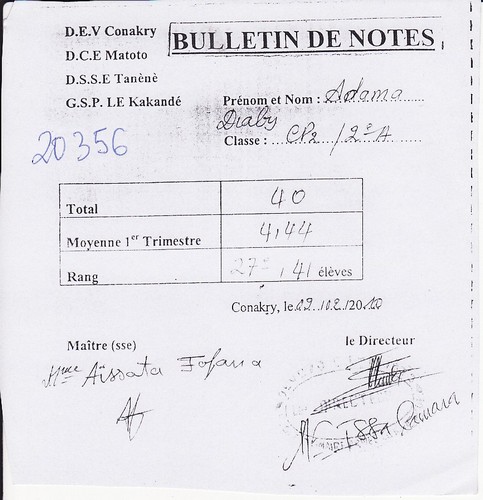 D.E.V Conakry
D.C.E Matoto
D.S.S.E Tanènè
G.S.P. LE Kakandé
BULLETIN DE NOTES
Prénom et Nom : Adama
Diaby
Classe : CP2 / 2e A
20356
Total 40
Moyenne 1er Trimestre 4,44
Rang 27e / 41 élèves
Conakry, le 12 /02 /2010
Maître (sse)
le Directeur
Mme Aïssata Fofana
DIRECT
Camara